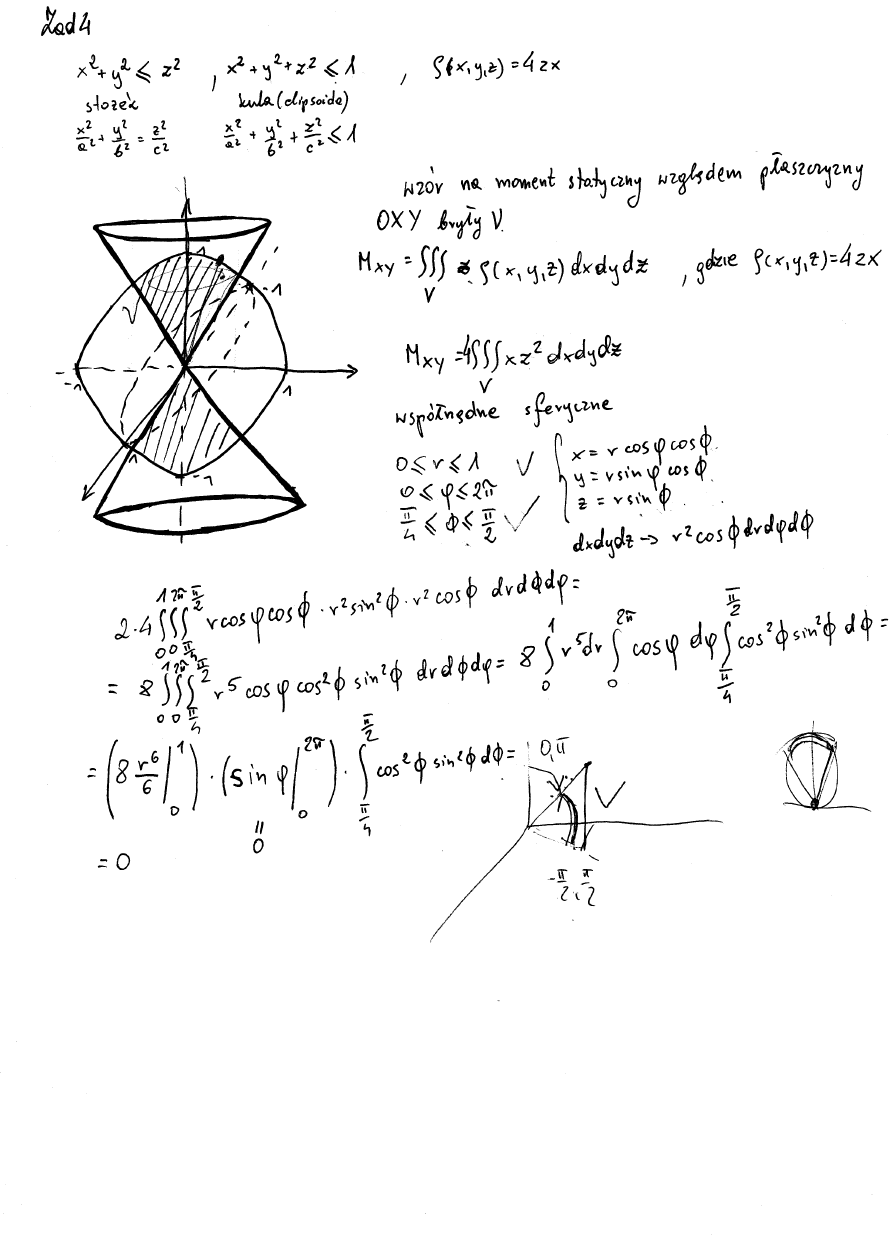 Zad 4
x² + y² ⩽ z² , x² + y² + z² ⩽ 1 , ρ(x,y,z) = 4zx
stożek kula (elipsoida)
x²/a² + y²/b² = z²/c² x²/a² + y²/b² + z²/c² ⩽ 1
wzór na moment statyczny względem płaszczyzny
OXY bryły V.
M_xy = ∭_V z · ρ(x,y,z) dxdydz , gdzie ρ(x,y,z) = 4zx
V
1
-1
-1
1
-1
M_xy = 4∭_V xz² dxdydz
współrzędne sferyczne
0 ⩽ r ⩽ 1 ✓
0 ⩽ φ ⩽ 2π
π/4 ⩽ ϕ ⩽ π/2 ✓
{ x = r cosφ cosϕ
y = r sinφ cosϕ
z = r sinϕ
dxdydz → r² cosϕ drdφdϕ
2·4 ∫₀¹ ∫₀^{2π} ∫_{π/4}^{π/2} r cosφ cosϕ · r² sin²ϕ · r² cosϕ drdϕdφ =
= 8 ∫₀¹ ∫₀^{2π} ∫_{π/4}^{π/2} r⁵ cosφ cos²ϕ sin²ϕ drdϕdφ = 8 ∫₀¹ r⁵dr ∫₀^{2π} cosφ dφ ∫_{π/4}^{π/2} cos²ϕ sin²ϕ dϕ =
= (8 r⁶/6 |₀¹) · (sin φ |₀^{2π}) · ∫_{π/4}^{π/2} cos²ϕ sin²ϕ dϕ =
||
0
= 0
0,π
✓
-π/2, π/2